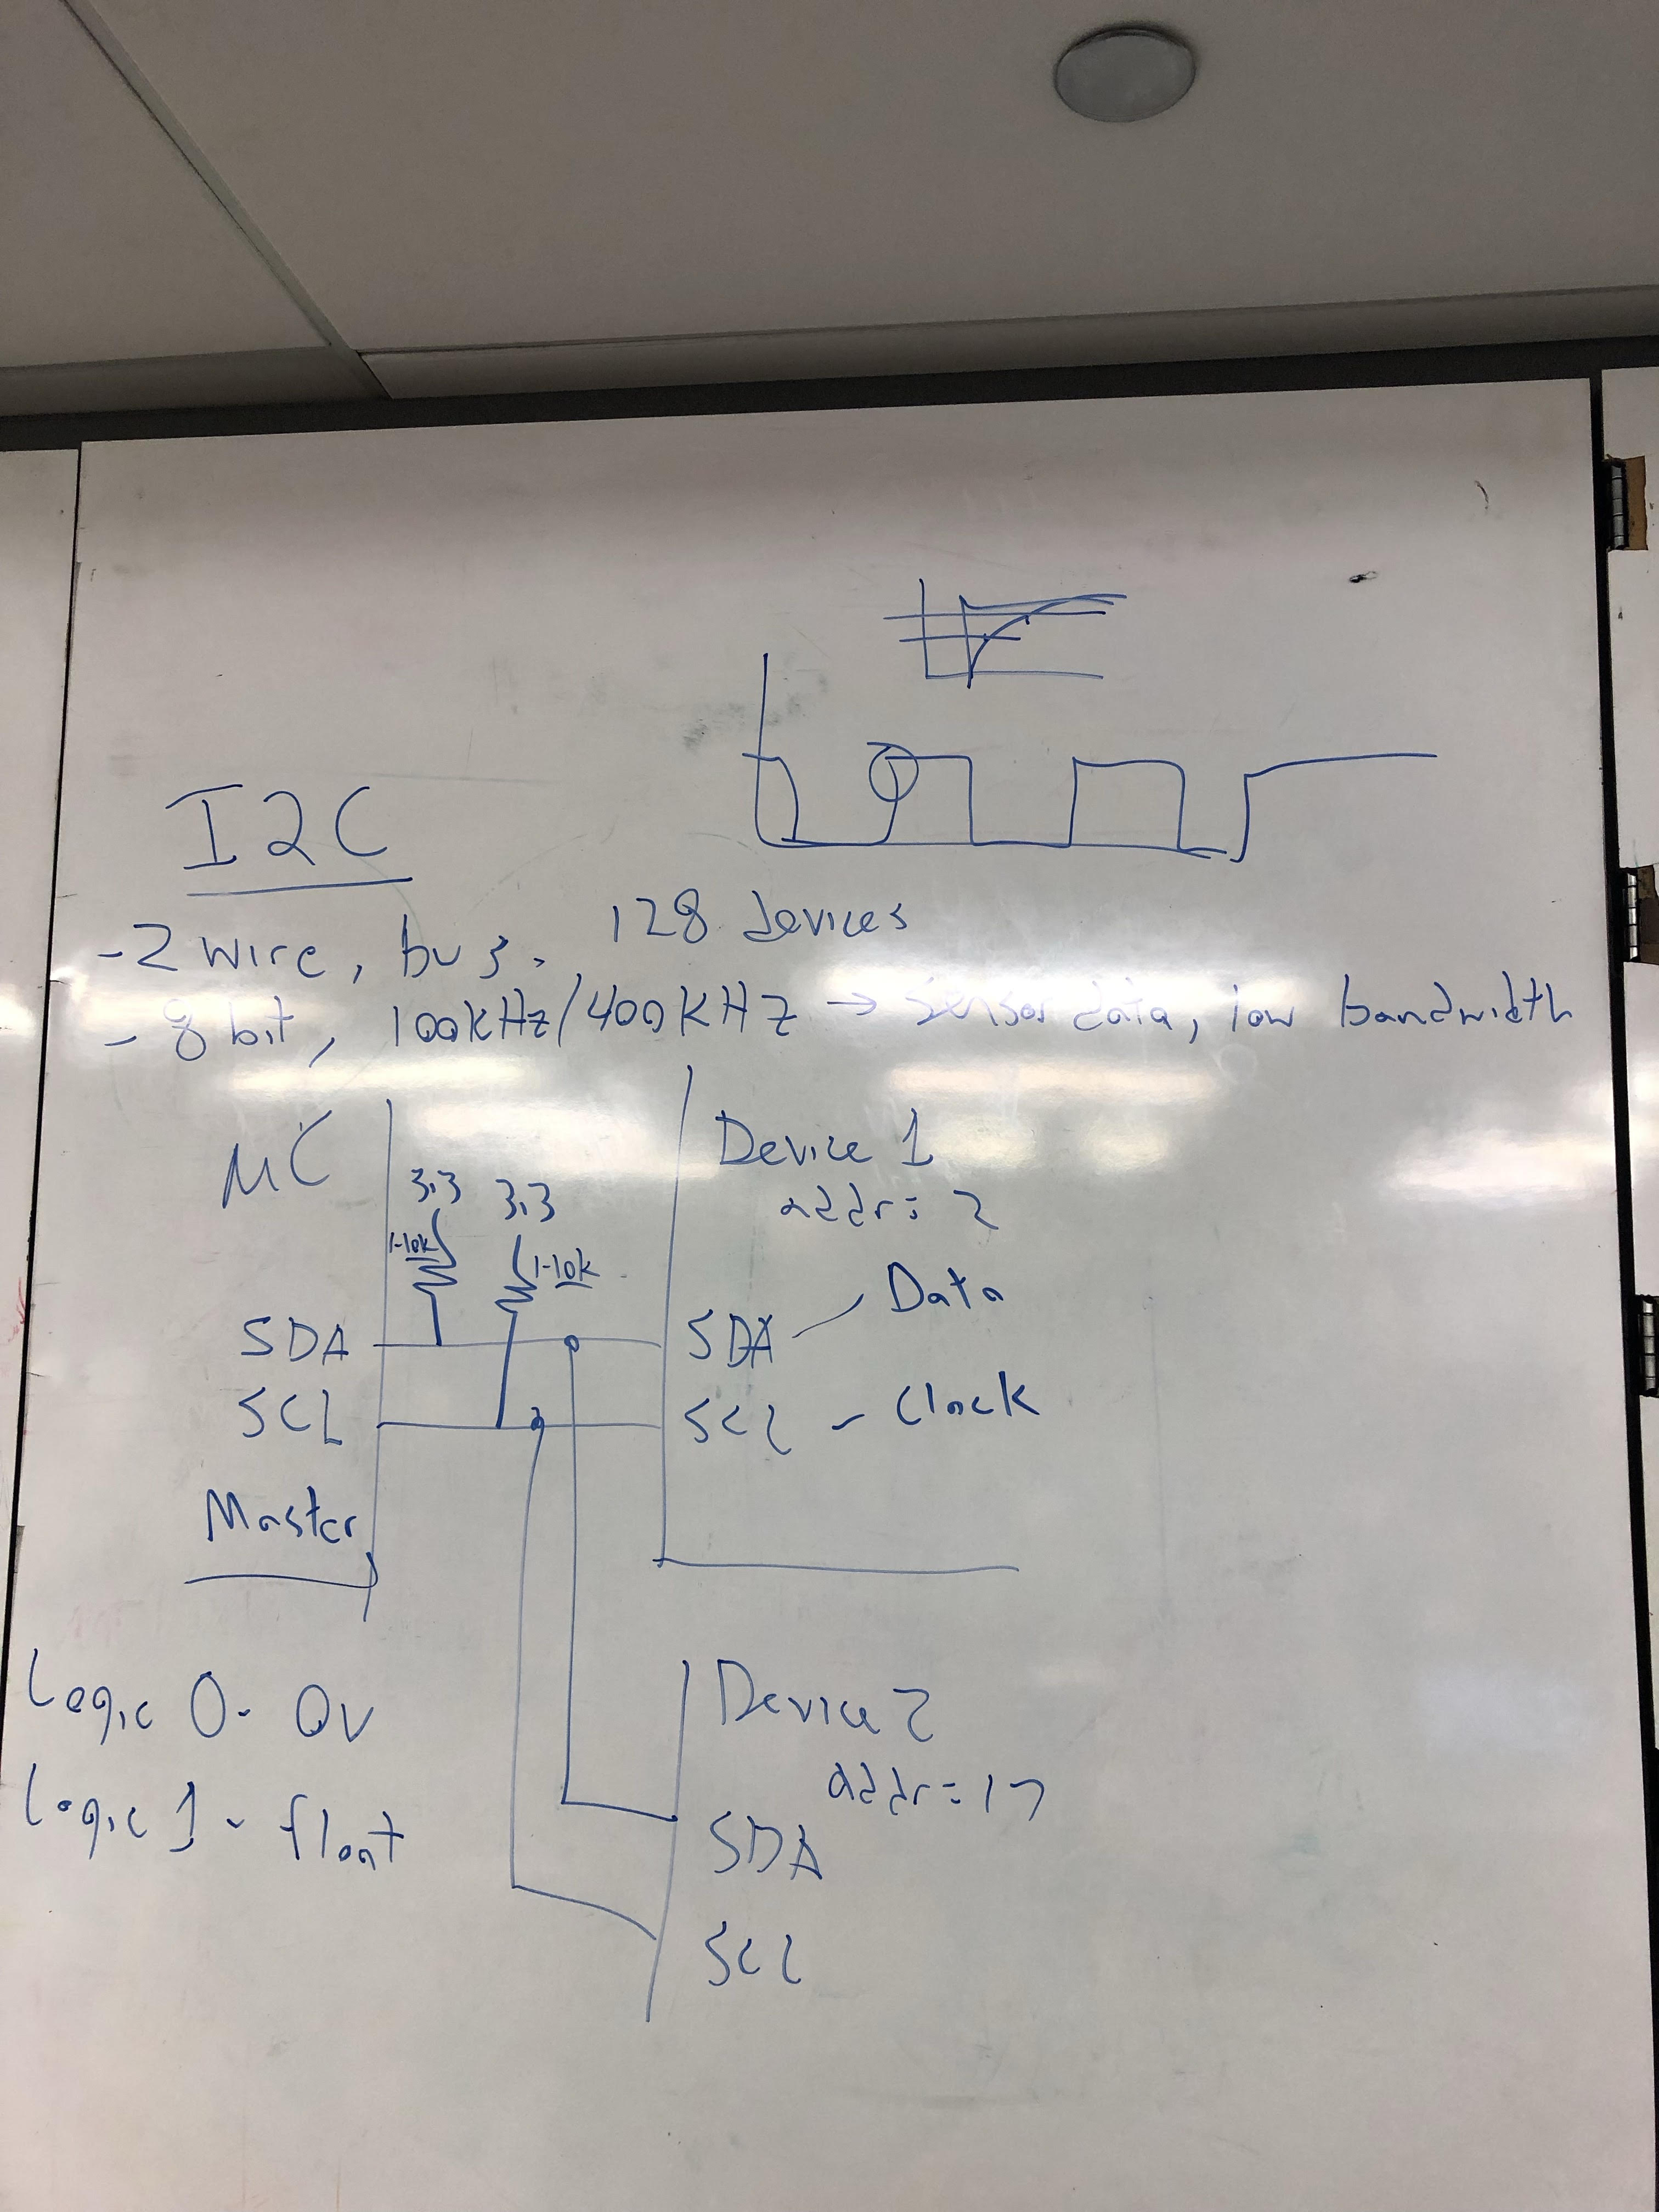 I2C
128 devices
- 2 wire, bus.
- 8 bit, 100kHz/400KHz → sensor data, low bandwidth
μC
3.3
3.3
1-10k
1-10k
SDA
SCL
Master
Device 1
addr = 2
SDA - Data
SCL - Clock
Logic 0 - 0v
Logic 1 - float
Device 2
addr = 17
SDA
SCL